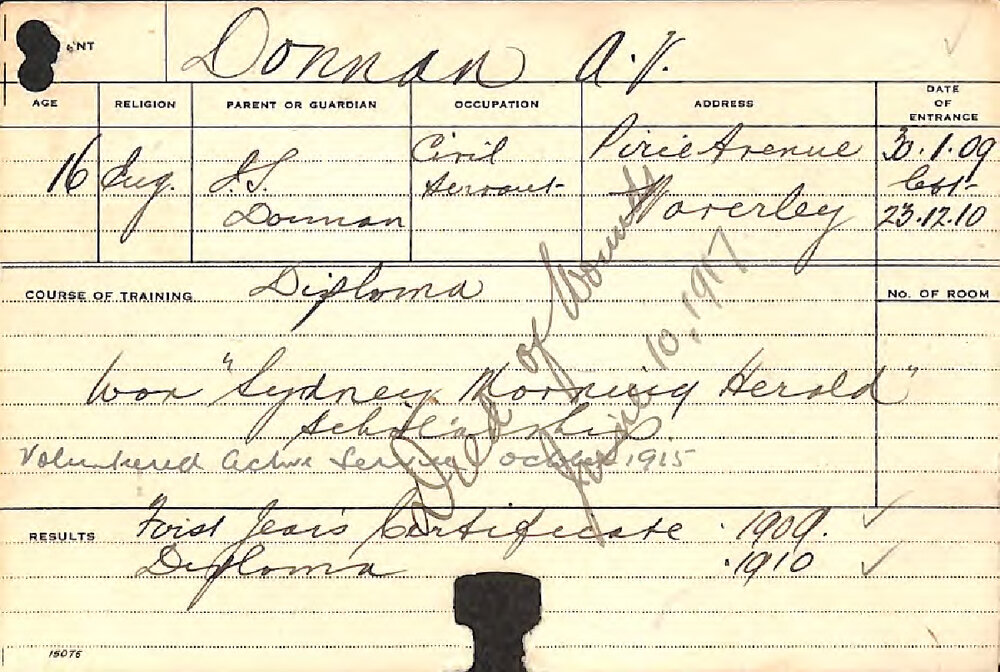 Donnan A.V.
AGE RELIGION PARENT OR GUARDIAN OCCUPATION ADDRESS DATE OF ENTRANCE
16 Eng. J.S. Donnan Civil Servant Pirie Avenue Waverley 30.1.09
left
23.12.10
COURSE OF TRAINING Diploma No. OF ROOM
Won "Sydney Morning Herald"
Scholarship.
Volunteered active Service October 1915
Died of Wounds
June 10, 1917
RESULTS First Year's Certificate . 1909.
Diploma . 1910
15075